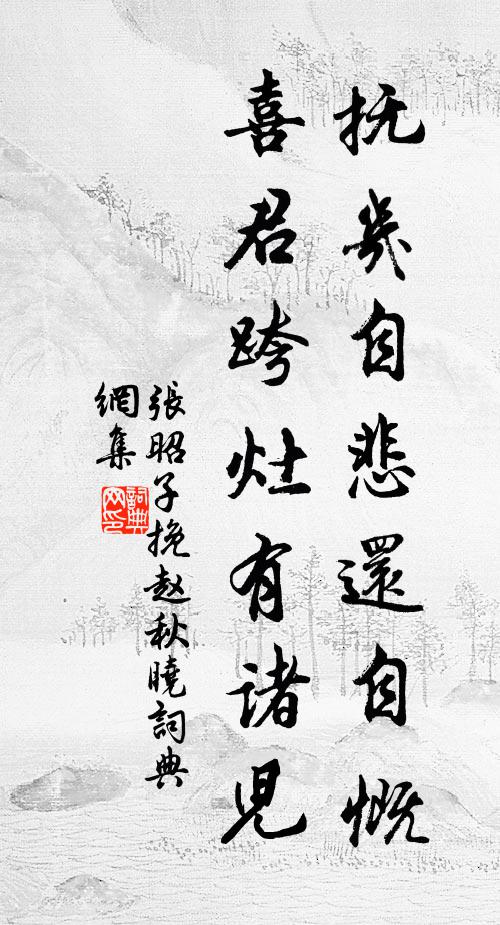 抚幾自悲還自慨
喜君跨灶有诸兒
張昭子挽赵秋曉詞典
網集
詞典
网印